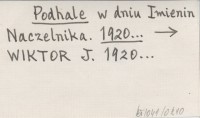 Podhale w dniu Imienin
Naczelnika. 1920... →
WIKTOR J. 1920...